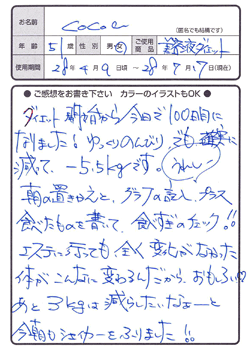 お名前
cocoe
(匿名でも結構です)
年齢 51歳 性別 男・女
ご使用商品 夜ダイエット
使用期間 28年4月9日頃 ～ 28年7月17日(現在)
● ご感想をお書き下さい カラーのイラストもOK ●
ダイエット開始から今日で100日目に
なりました！ゆっくりのんびり、でも確実に
減って、-5.5kgです。うれしい
朝の置きかえと、グラフの記入、プラス
食べたものを書いて、食べすぎのチェック!!
エステに通っても、全く変化がなかった
体がこんなに変わるんだから、おもしろい♡
あと3kgは減らしたいなぁーと
今朝もシェイカーをふりました!!